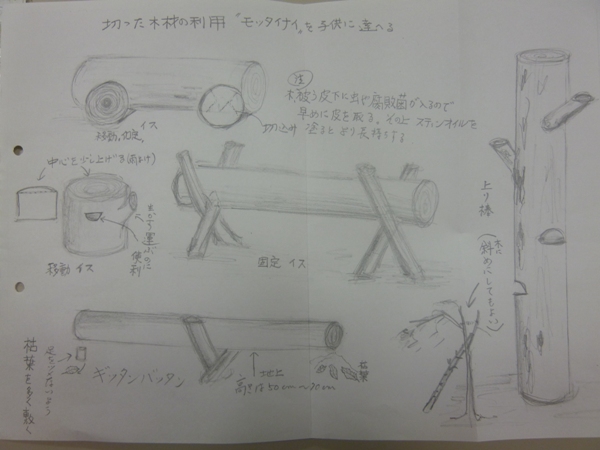 切った木材の利用 "モッタイナイ"を子供に達へる
注
木被う皮下に虫や腐敗菌が入るので
早めに皮を取る。その上 ステンオイルを
塗ると より長持ちする
イス
移動。固定。
切込み
中心を少し上げる(雨よけ)
運ぶのに
便利
移動イス
固定 イス
上り棒
(斜めにしてもよい)
ギッタンバッタン
地上
高さは50cm〜70cm
枯葉
枯葉を多く敷く